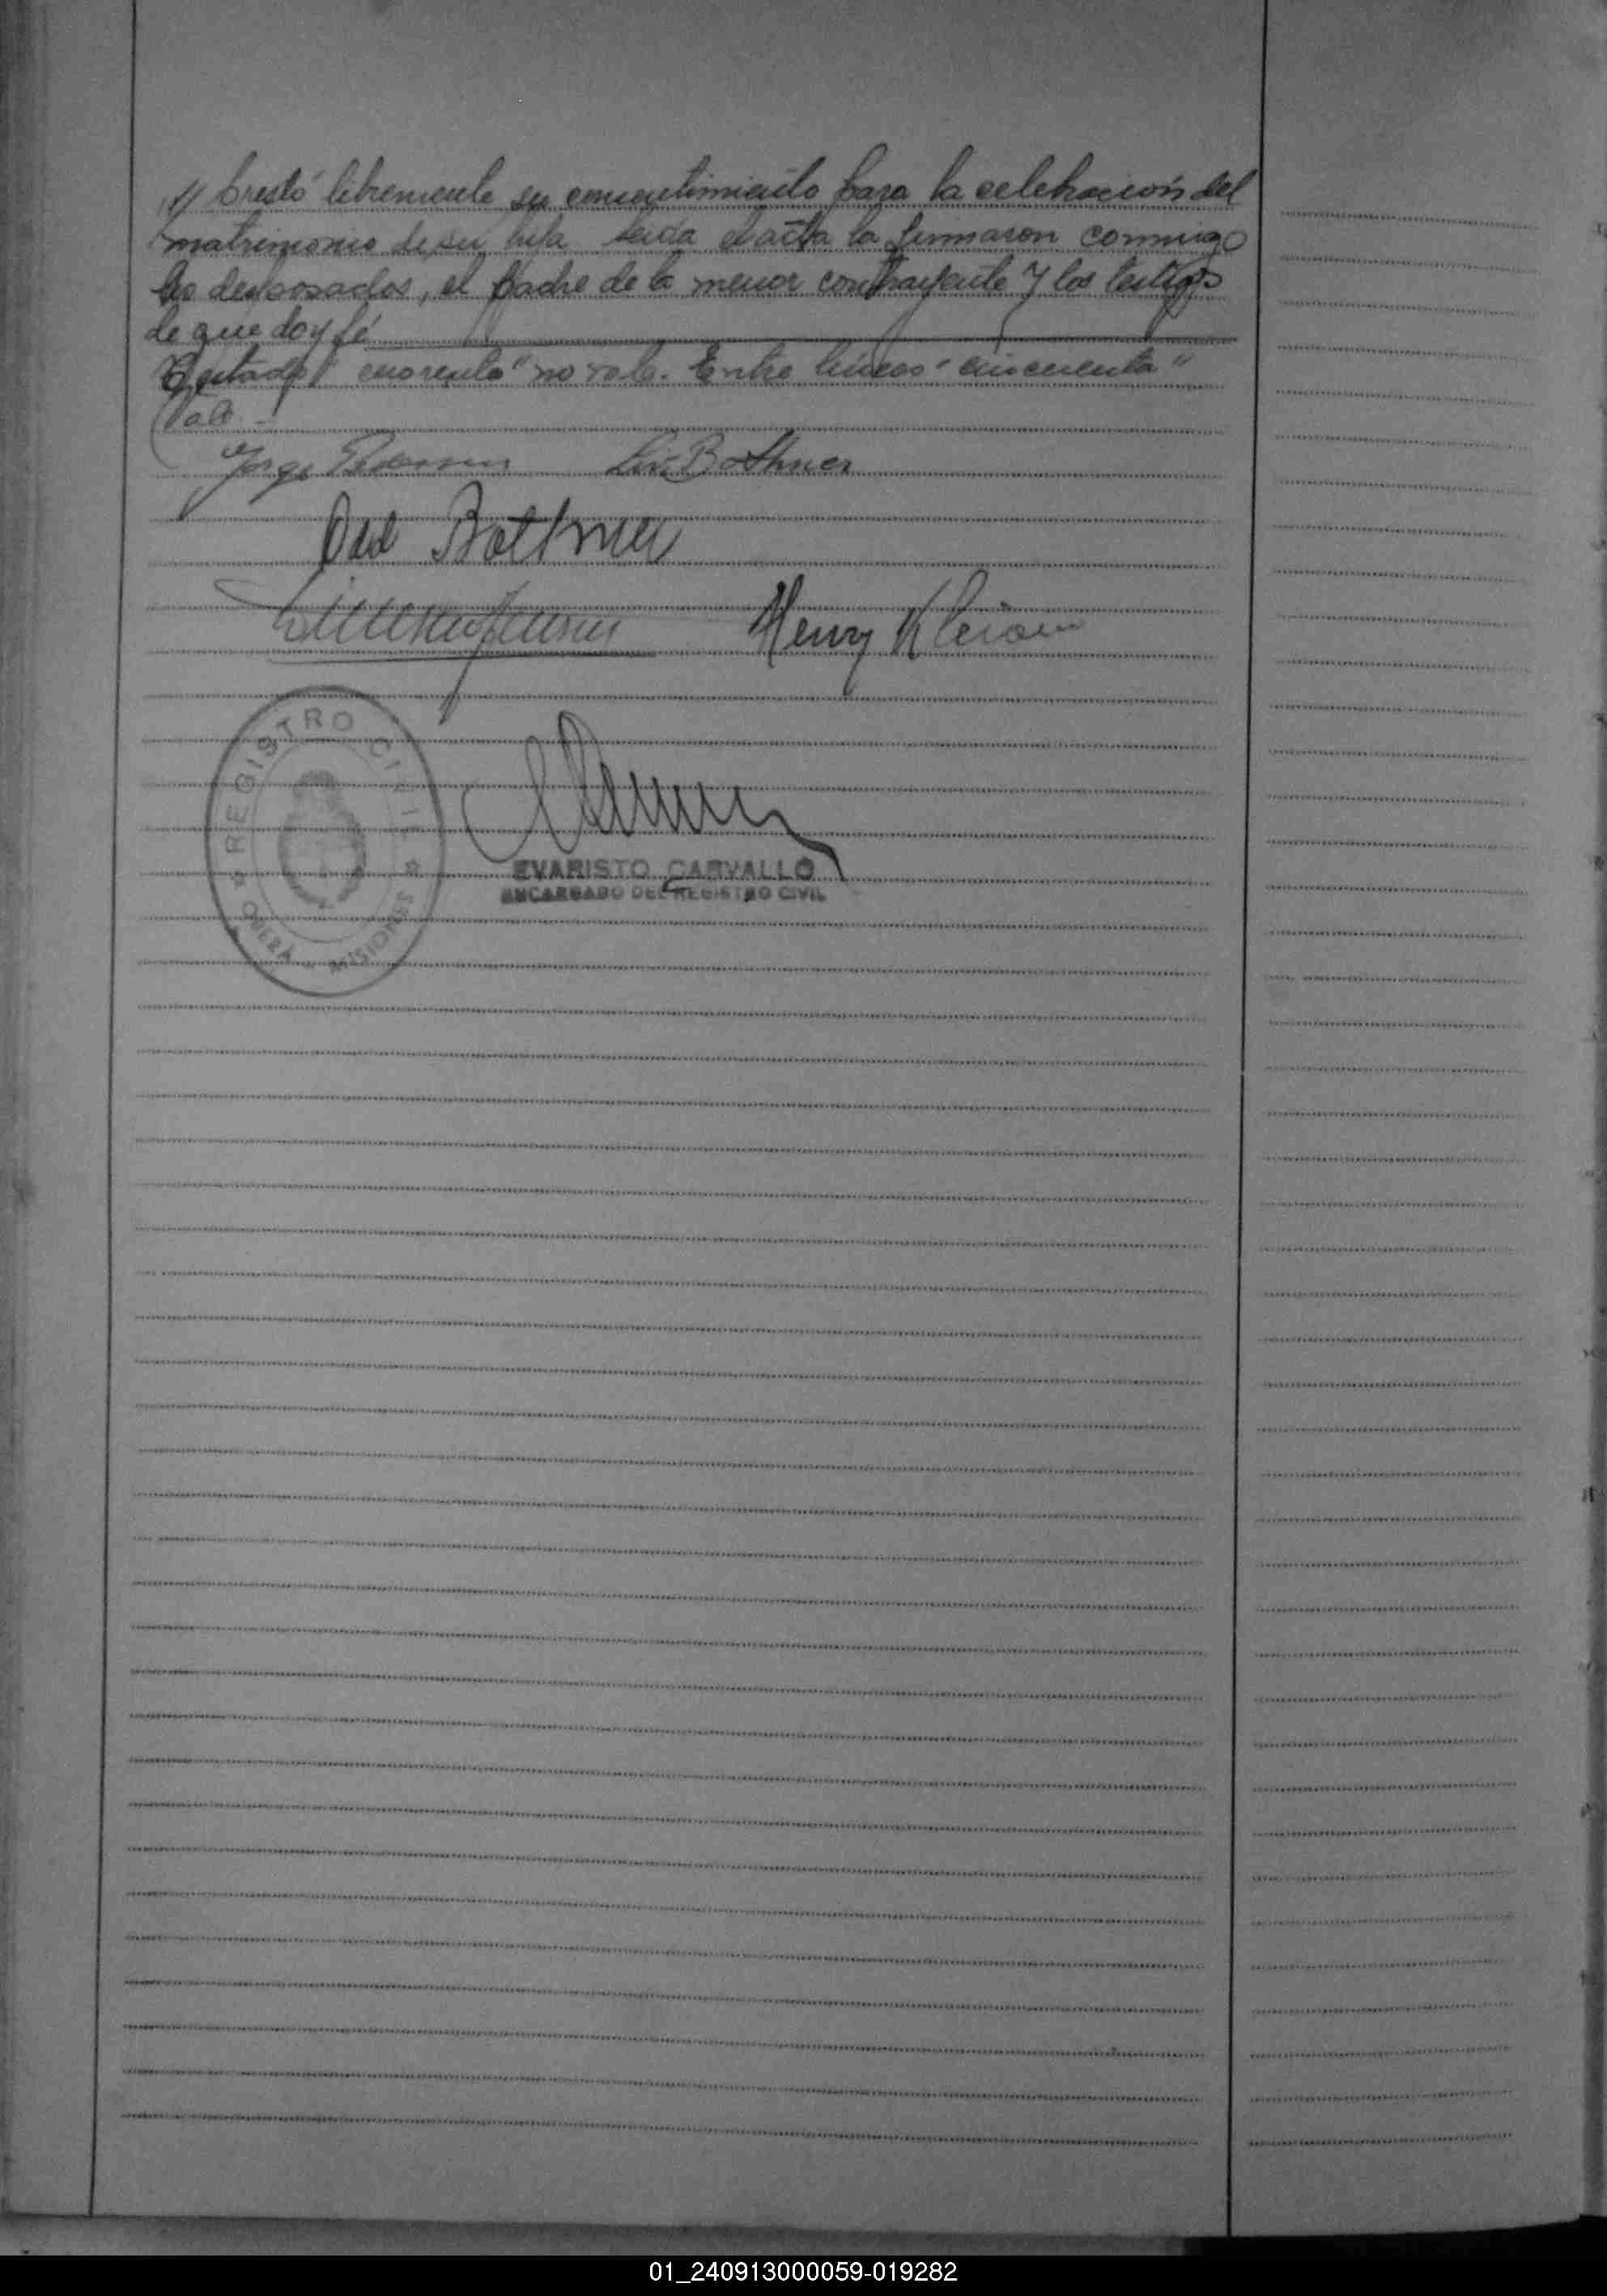 prestó libremente su consentimiento para la celebración del
matrimonio de su hija leída el acta la firmaron conmigo
los desposados, el padre de la menor contrayente y los testigos
de que doy fé
Testado "cuarenta" no vale. Entre líneas "cincuenta"
Vale.-
Jorge Liv Bothner
Odd Bothner
Henry
REGISTRO CIVIL
OBERÁ - MISIONES
EVARISTO CARVALLO
ENCARGADO DEL REGISTRO CIVIL
01_240913000059-019282